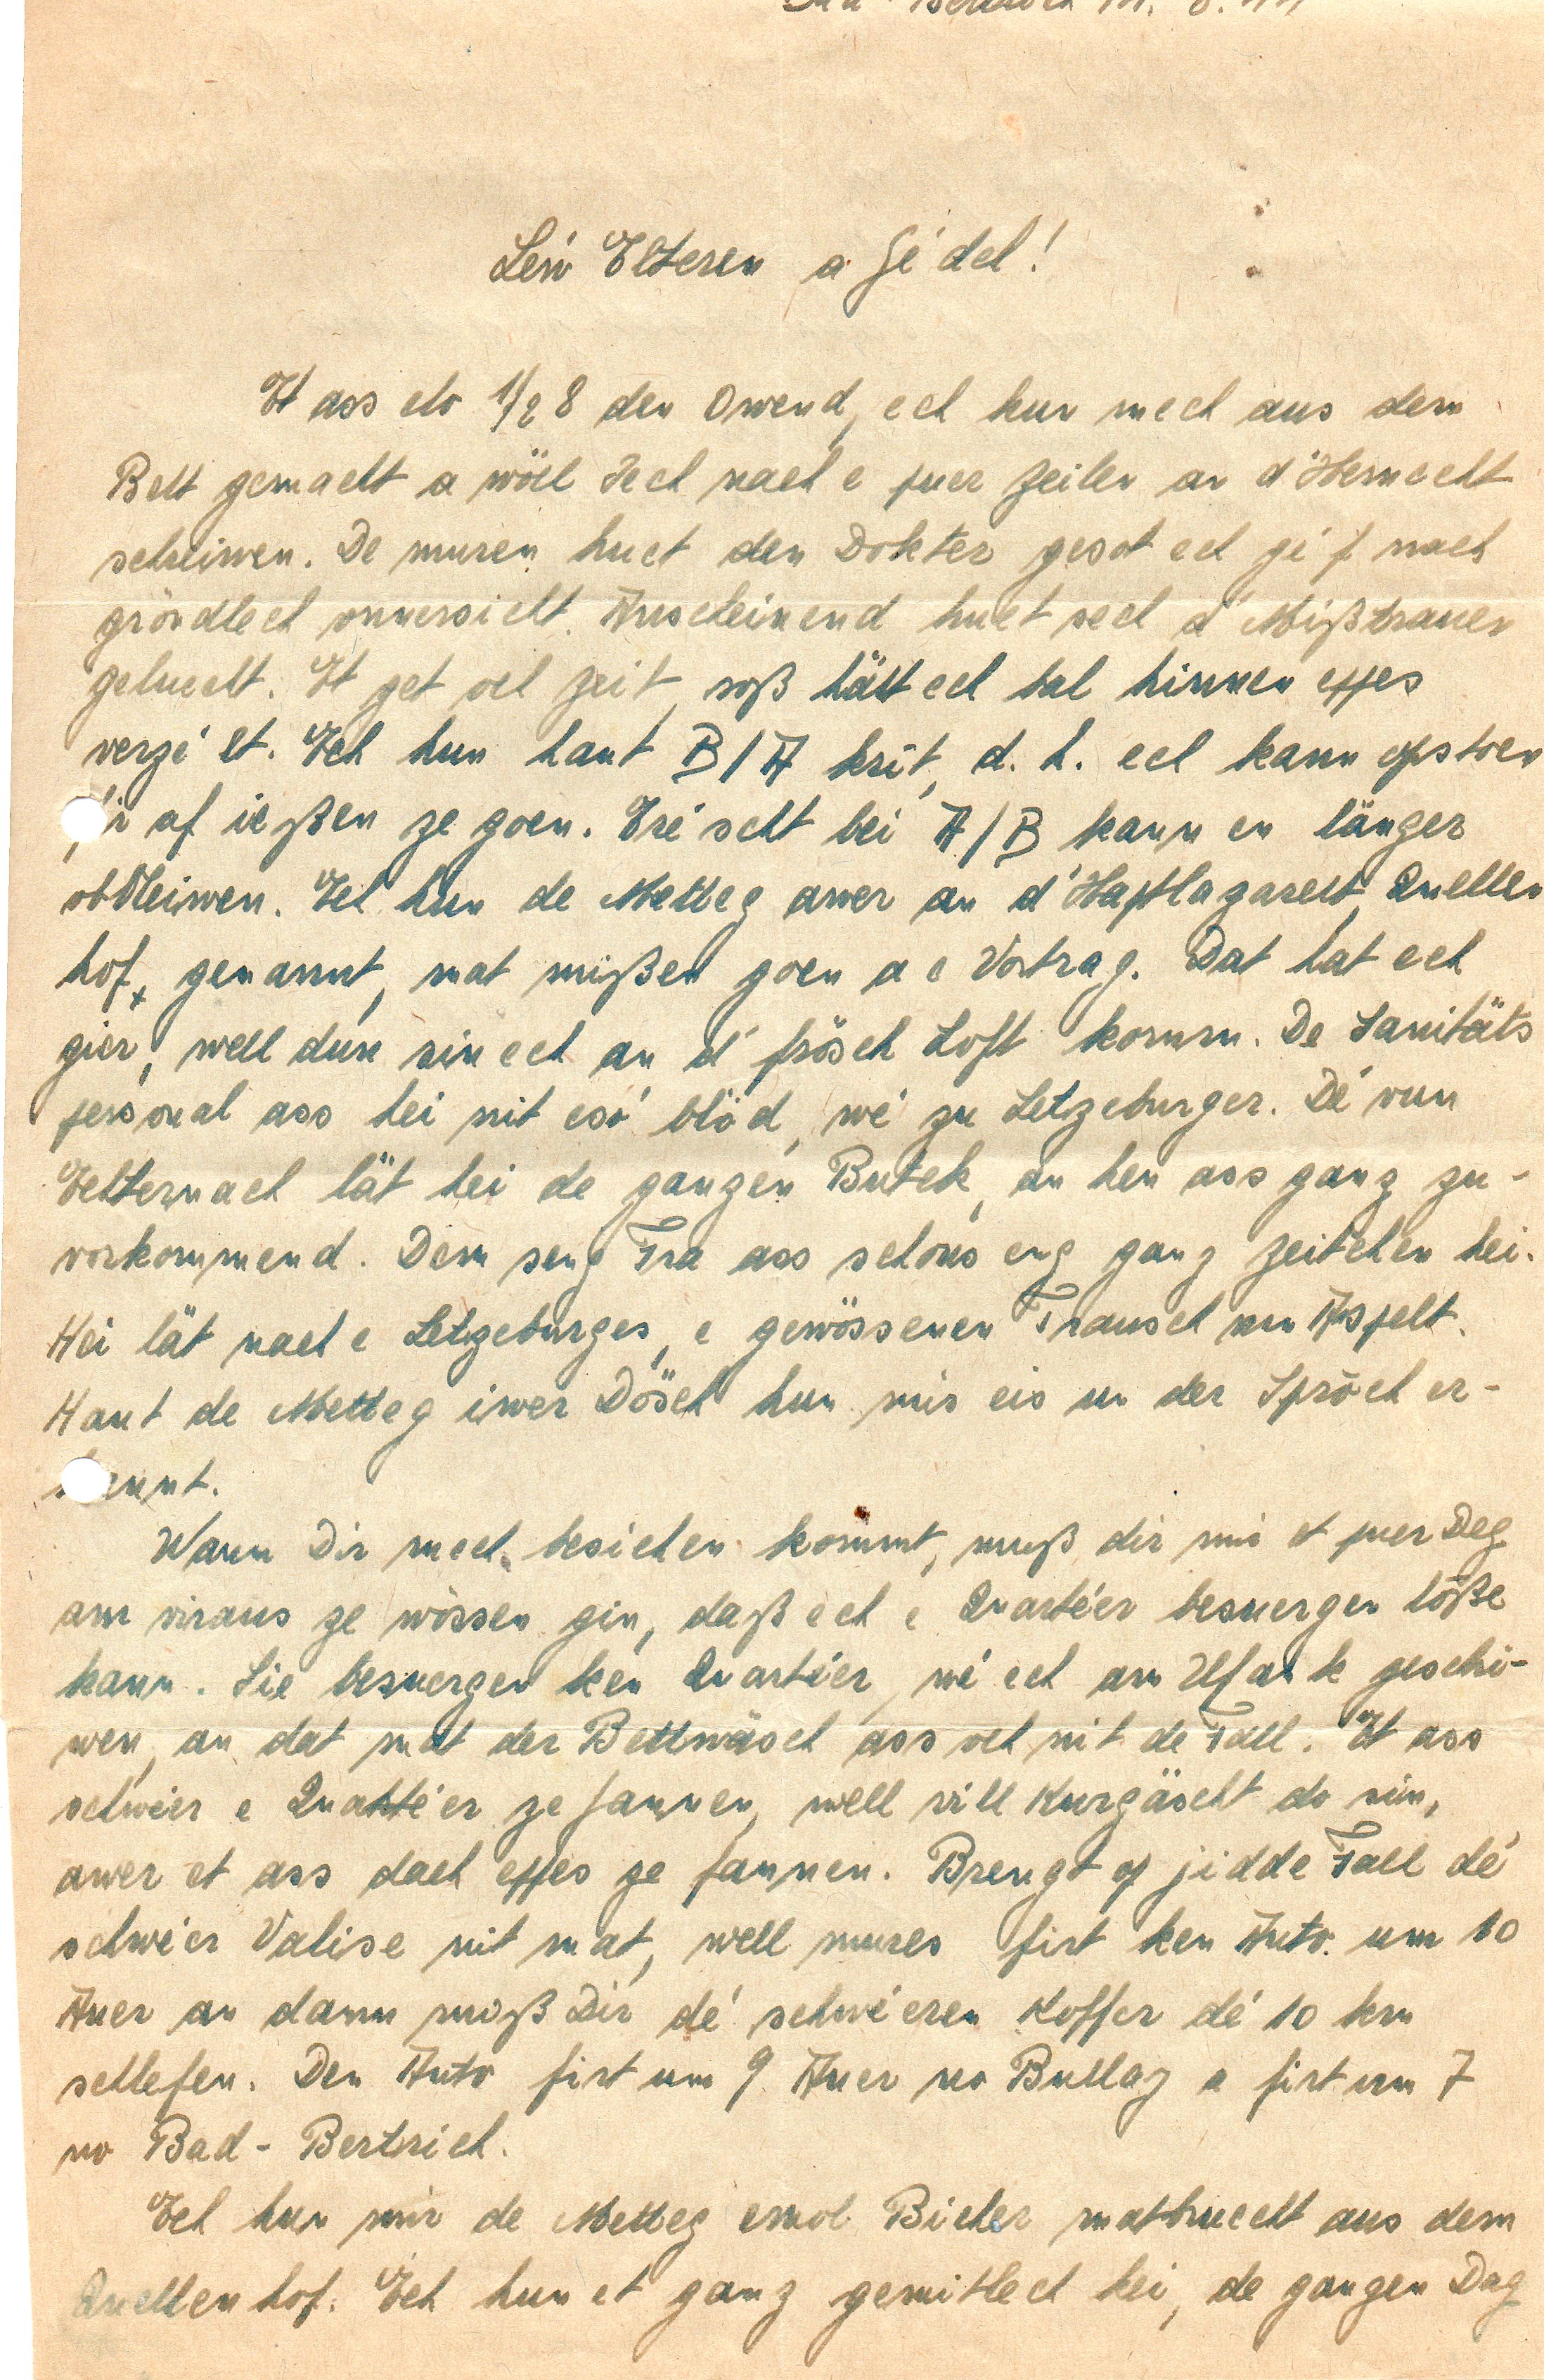 Bertrich 14. 8. 44
Léiv Elteren a Gédel!
Et ass elo 1/2 8 den Owend, ech hun mech aus dem
Bett gemacht a wöll Iech nach e puer Zeilen an d'Hemecht
schreiwen. De muren huet den Dokter gesot ech gif nach
gröndlech onnersicht. Anscheinend huet sech d'Mißtrauen
geluecht. Et get vel Zeit, soß hätt ech bal hinnen effes
verzélt. Ech hun haut B/A krit, d. h. ech kann opstoen
fir af ießen ze goen. Eréischt bei A/B kann en länger
obbleiwen. Ech hun de Metteg awer an d'Haptlazarett, Quellen
hof, genannt, mat mißen goen a e Vortrag. Dat hat ech
gier, well dun sin ech an d'frösch Loft komm. De Sanitäts
personal ass hei nit esó blöd, wé zu Letzeburger. Dé vun
Iechternach lät hei de ganzen Butek, an hen ass ganz zu-
vorkommend. Dem seng Fra ass schons eng ganz Zeitchen hei.
Hei lät nach e Letzeburger, e gewössenen Frausch vun Aspelt.
Haut de Metteg iwer Dösch hun mir eis un der Sprôch er-
kannt.
Wann Dir mech besichen kommt, muß dir mir et puer Deg
am viraus ze wössen gin, daß ech e Quartéer besuergen löße
kann. Sie besuergen ken Quartéer, wé ech am Ufank geschri-
wen, an dat mat der Bettwäsch ass och nit de Fall. Et ass
schwéer e Quartéer ze fannen, well vill Kurgäscht do sin,
awer et ass dach effes ze fannen. Brengt op jidde Fall dé
schwéer Valise nit mat, well mures firt ken Auto um 10
Auer an dann muß Dir dé schwéeren Koffer dé 10 km
schlefen. Den Auto firt um 9 Auer vo Bullay a firt um 7
vo Bad-Bertrich.
Ech hun mir de Metteg emol Bicher matbruecht aus dem
Quellenhof. Ech hun et ganz gemitlech hei, de ganzen Dag